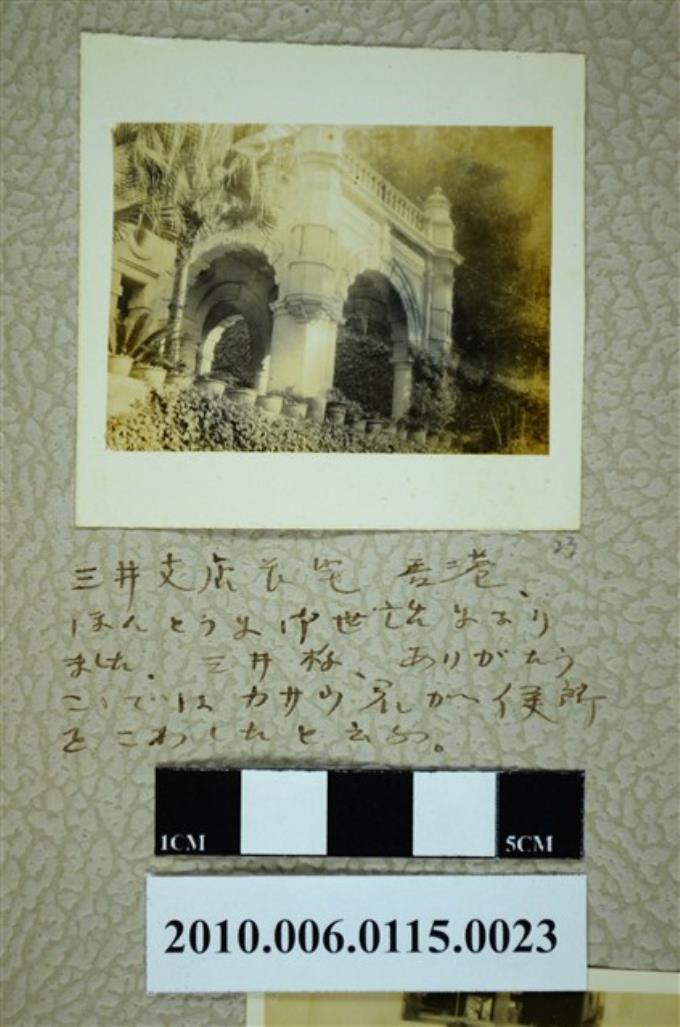 23
三井支店長宅 香港、
ほんとうに御世話になり
ました。三井様、ありがたう
こゝでは カサハ 君が 便所
をこわしたと云ふ。
1CM
5CM
2010.006.0115.0023